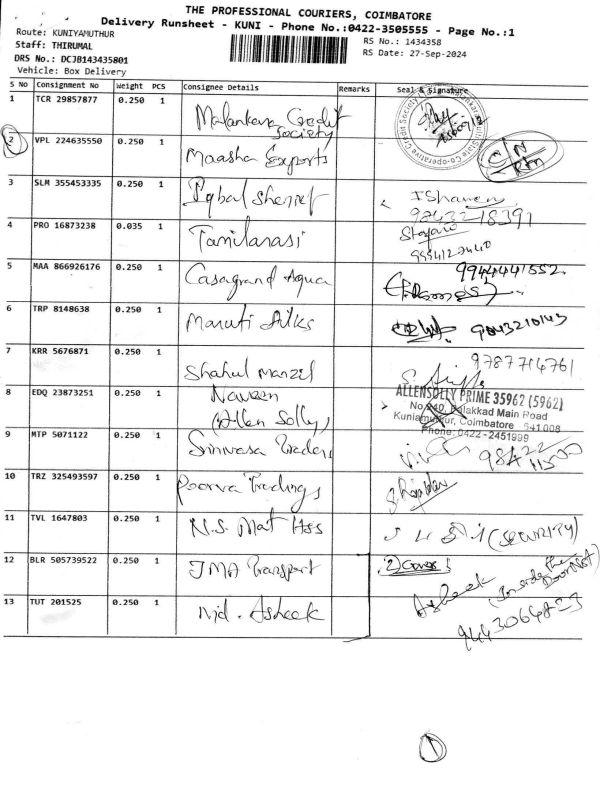 THE PROFESSIONAL COURIERS, COIMBATORE
Delivery Runsheet - KUNI - Phone No.:0422-3505555 - Page No.:1
Route: KUNIYAMUTHUR
RS No.: 1434358
Staff: THIRUMAL
RS Date: 27-Sep-2024
DRS No.: DCJB143435801
Vehicle: Box Delivery
S No Consignment No Weight PCS Consignee Details Remarks Seal & Signature
1 TCR 29857877 0.250 1 Malankara Credit Society
2 VPL 224635550 0.250 1 Maasha Exports
3 SLM 355453335 0.250 1 Iqbal Sherief
9843218391
4 PRO 16873238 0.035 1 Tamilarasi
9994122440
5 MAA 866926176 0.250 1 Casagrand Aqua 9944441552
6 TRP 8148638 0.250 1 Maruti Silks 9043210143
7 KRR 5676871 0.250 1 Shahul Manzil 9787714761
8 EDQ 23873251 0.250 1 Naveen (Allen Solly)
ALLENSOLLY PRIME 35962 (5962)
Palakkad Main Road
Kuniamuthur, Coimbatore 641008
Phone: 0422-2451999
9 MTP 5071122 0.250 1 Srinivasa Traders
10 TRZ 325493597 0.250 1 Poorva Tradings
11 TVL 1647803 0.250 1 N.S. Mat Hss (SECURITY)
12 BLR 505739522 0.250 1 JMA Transport 2) Covers
13 TUT 201525 0.250 1 Md. Asheek Asheek (Inside the Door Net)
9443064823
1